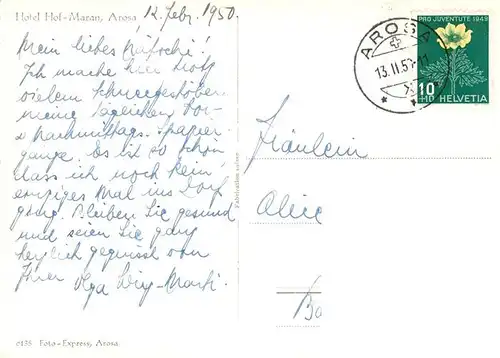 Hotel Hof-Maran, Arosa, 12. Febr. 1950.
Mein liebes
Ich mache hier trotz
vielem Schneegestöber
meine täglichen Vor-
& Nachmittags-Spazier-
gänge. Es ist so schön
dass ich noch kein
einziges Mal ins Dorf
ging. Bleiben Sie gesund
und seien Sie ganz
herzlich gegrüsst von
Ihrer Olga
6135 Foto-Express, Arosa
Fabrication suisse
AROSA
13.II.50
PRO JUVENTUTE 1949
10
HELVETIA
Fräulein
Alice
Ba